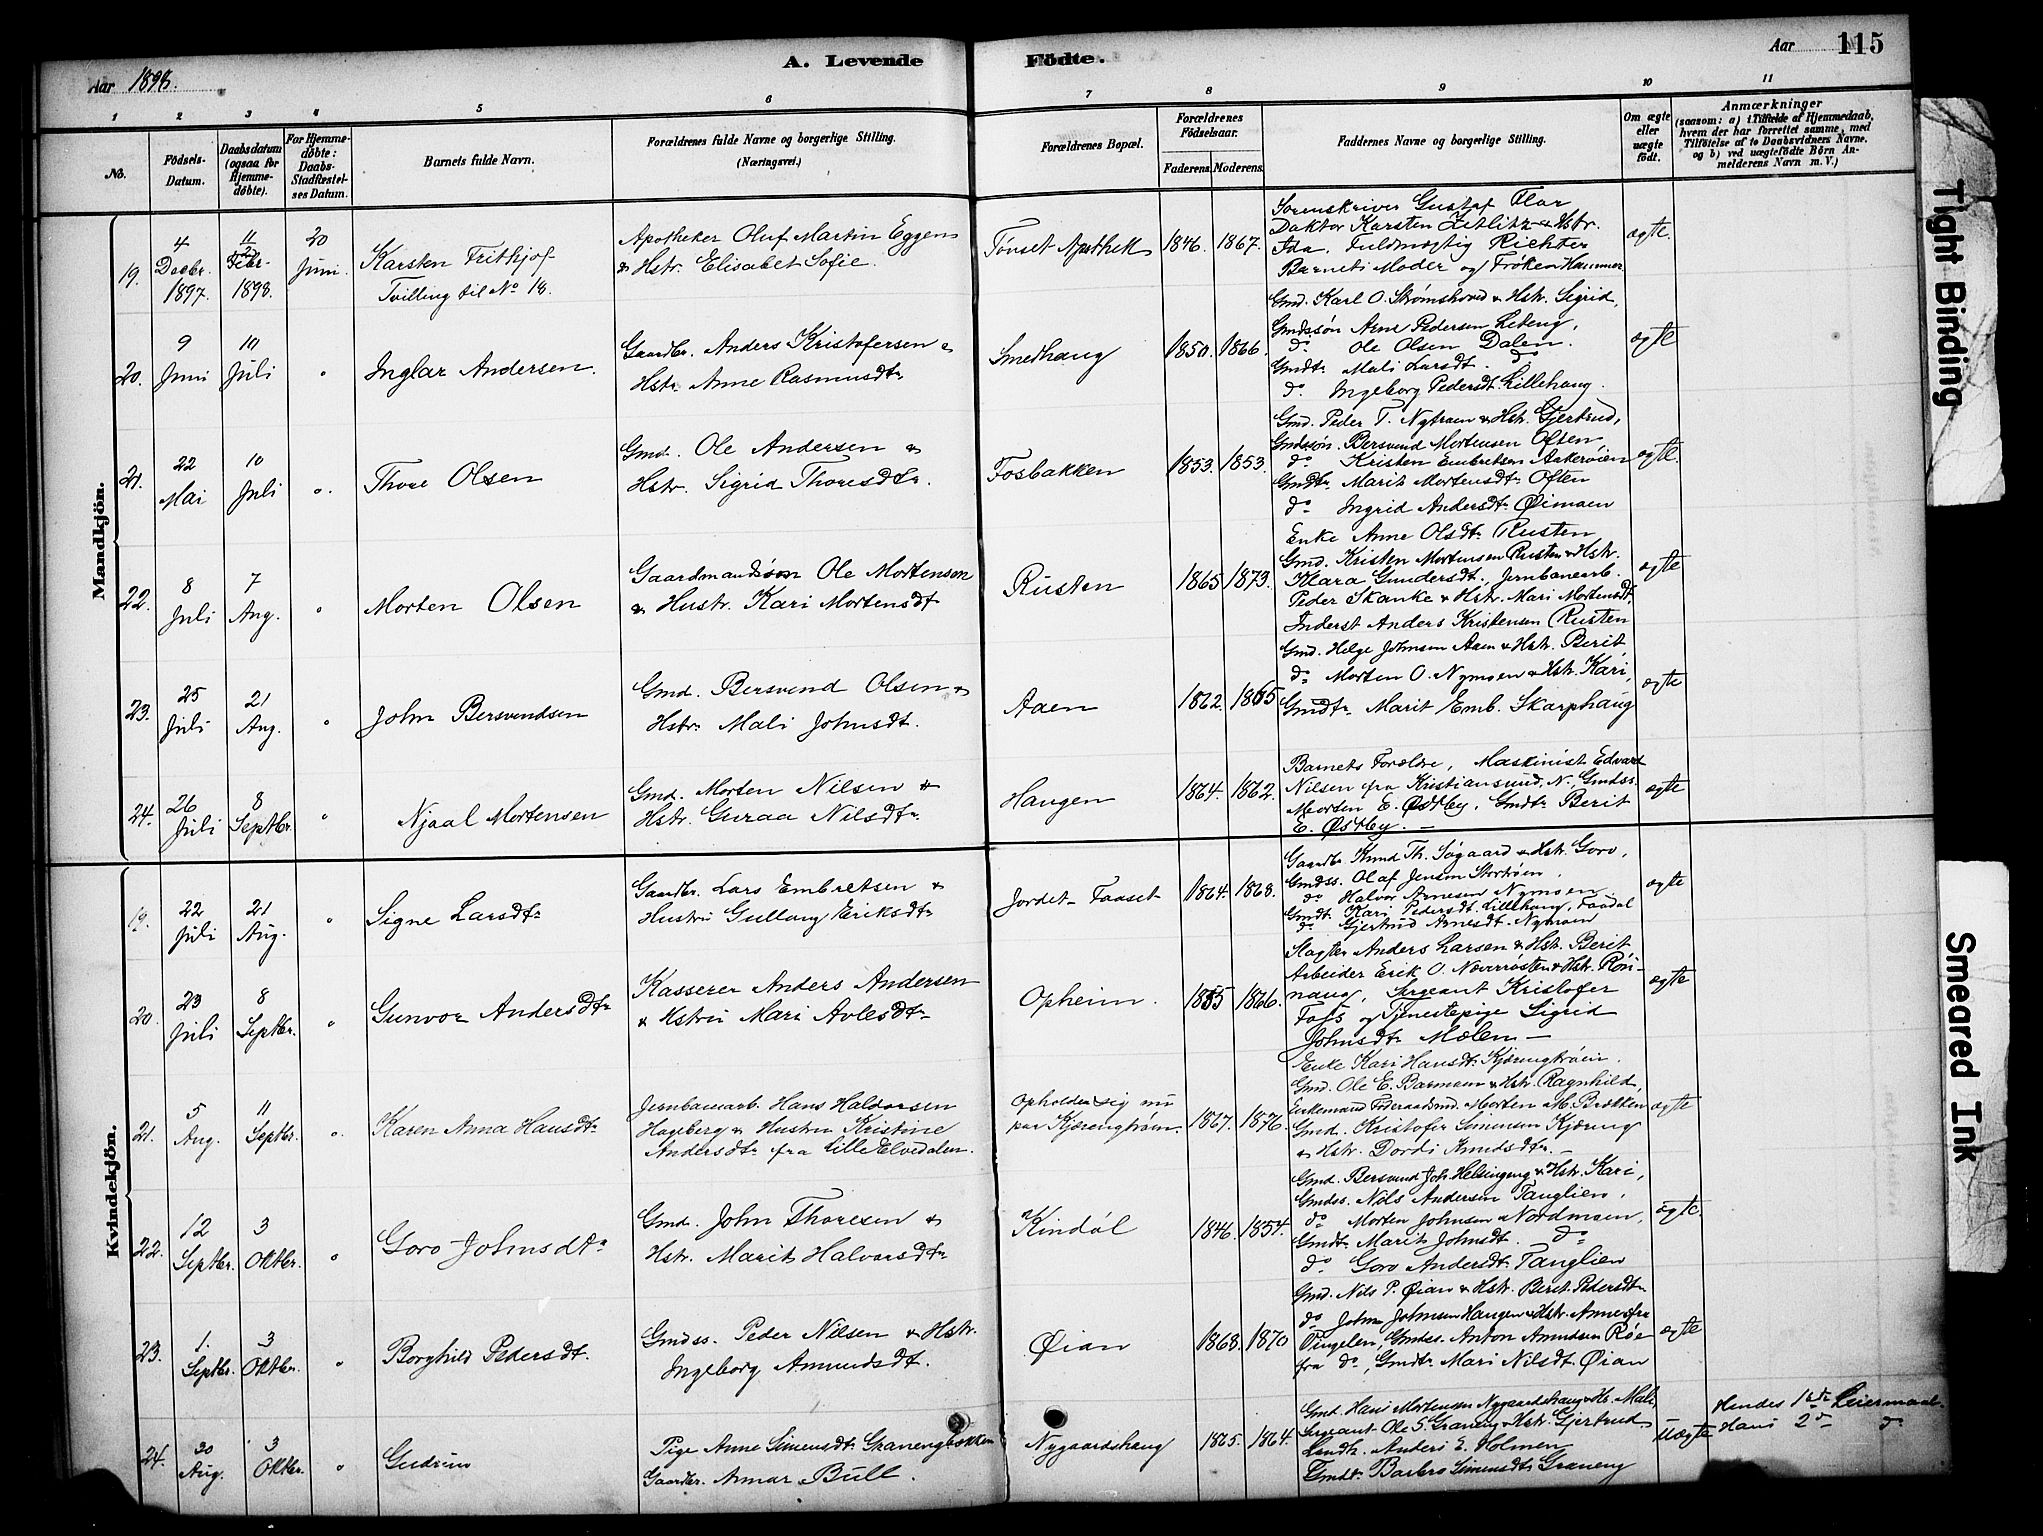 Aar 1898.
A. Levende Födte.
Aar 115
1 2 3 4 5 6 7 8 9 10 11
No.
Födsels-
Datum.
Daabsdatum
(ogsaa for
Hjemme-
döbte).
For Hjemme-
döbte:
Daabs-
Stadfæstel-
ses Datum.
Barnets fulde Navn.
Forældrenes fulde Navne og borgerlige Stilling.
(Næringsvei.)
Forældrenes Bopæl.
Forældrenes
Födselsaar.
Faderens. Moderens.
Faddernes Navne og borgerlige Stilling.
Om ægte
eller
uægte
födt.
Anmærkninger
(saasom: a) i Tilfælde af Hjemmedaab,
hvem der har forrettet samme, med
Tilföielse af to Daabsvidners Navne,
og b) ved uægtefödte Börn An-
melderens Navn m. V.)
Mandkjön.
19.
4
Decbr.
1897.
11
Febr.
1898.
20
Juni.
Karsten Frithjof
Tvilling til No 18.
Apotheker Oluf Martin Eggen
& Hstr. Elisabet Sofie.
Tönset Apothek
1846. 1867.
Sorenskriver Gustaf
Doktor Karsten Zetlitz & Hstr.
Ida. Fuldmægtig Richter
Barnets Moder og Frøken Hammer
ægte.
20.
9
Juni
10
Juli
"
Inglar Andersen.
Gaardbr. Anders Kristofersen &
Hstr. Anne Rasmusdtr
Smedhaug
1850. 1866.
Gmd. Karl O. Strømshoved & Hstr. Sigrid,
Gmdssøn Arne Pedersen Leteng,
do. Ole Olsen Dalen.
Gmdtr. Mali Larsdt. do
do. Ingeborg Pedersdt. Lillehaug.
ægte
21.
22
Mai
10
Juli
"
Thore Olsen
Gmd. Ole Andersen &
Hstr. Sigrid Thoresdtr.
Fosbakken
1853. 1853.
Gmd. Peder T. Nytrøen & Hstr. Gjertrud,
Gmdssøn. Bersvend Mortensen Often,
do. Kristen Embretsen Askerøien
Gmdtr. Marit Mortensdtr. Often
do Ingrid Andersdt. Øimoen
ægte.
22.
8
Juli
7
Aug.
"
Morten Olsen
Gaardmandssøn Ole Mortenson
& Hustr. Kari Mortensdt
Rusten
1865 1873.
Enke Anne Olsdt. Rusten
Gmd. Kristen Mortensen Rusten & Hstr.
Klara Gundersdt., Jernbanearb.
Peder Skanke & Hstr. Mari Mortensdt.
Inderst Anders Kristensen Rusten
ægte
23.
25
Juli
21
Aug.
"
John Bersvendsen
Gmd. Bersvend Olsen &
Hstr. Mali Johnsdt.
Aaen
1862. 1865
Gmd. Helge Johnsen Aaen & Hstr. Berit
do. Morten O. Nymoen & Hstr. Kari,
Gmdtr. Marit Emb. Skarphaug
ægte
24.
26
Juli
8
Septbr.
"
Njaal Mortensen
Gmd. Morten Nilsen &
Hstr. Guraa Nilsdtr.
Haugen
1864. 1862.
Barnets Forældre, Maskinist Edvard
Nilsen fra Kristiansund N. Gmdss.
Morten E. Østby, Gmdtr. Berit
E. Østby. —
ægte
Kvindekjön.
19.
22
Juli
21
Aug.
"
Signe Larsdtr
Gaardbr. Lars Embretsen &
Hustru Gullaug Eriksdtr
Jordet - Faaset
1864. 1868.
Gaardbr. Knud Th. Søgaard & Hstr. Goro,
Gmdss. Olaf Jensen Stortrøen.
do. Halvor Arnesen Nymoen.
Gmdt. Kari Pedersdt. Lillehaug, Faadal
do. Gjertrud Arnesdt. Nymoen
ægte
20.
23
Juli
8
Septbr.
"
Gunvor Andersdtr
Kasserer Anders Andersen
& Hstru Mari Avlesdtr
Opheim.
1855 1866.
Slagter Anders Larsen & Hstr. Berit
Arbeider Erik O. Næverrøsten & Hstr. Røn-
naug, Sergeant Kristofer
Foss og Tjenestepige Sigrid
Johnsdt. Mælen —
ægte
21.
5
Aug.
11
Septbr.
"
Karen Anna Hansdtr
Jernbanearb. Hans Haldorsen
Hageberg & Hustru Kristine
Andersdtr fra Lille Elvedalen.
Opholder sig nu
paa Kjærengtrøen.
1867. 1876.
Enke Kari Hansdt. Kjærengtrøien.
Gmd. Ole E. Barmoen & Hstr. Ragnhild,
Enkemand Føderaadsmd. Morten M. Brækken
Gmd. Kristofer Simensen Kjæreng
& Hstr. Dordi Amdsdtr. —
ægte
22.
12
Septbr.
3
Oktbr.
"
Goro Johnsdtr
Gmd. John Thoresen &
Hstr. Marit Halvorsdtr
Kindøl
1846. 1854.
Gmd. Bersvend Joh. Helsingeng & Hstr. Kari,
Gmdss. Nils Andersen Tanglien,
do. Morten Johnsen Nordmoen,
Gmdtr. Marit Johnsdt. do
do. Goro Andersdt. Tanglien
ægte.
23.
1.
Septbr.
3
Oktbr.
"
Borghild Pedersdt.
Gmdss. Peder Nilsen & Hstr.
Ingeborg Amundsdt.
Øian
1868. 1870
Gmd. Nils P. Øian & Hstr. Beret Pedersdtr
do. John Johnsen Haugen & Hstr. Anne fra
Vingelen, Gmdss. Anton Amundsen Røe
fra do, Gmdtr. Mari Nilsdt. Øian
ægte
24.
30
Aug.
3
Oktbr.
"
Gudrun
Pige Anne Simensdt. Granengbakken
Gaardbr. Anmar Bull.
Nygaardshaug
1865. 1864.
Gmd. Hans Mortensen Nygaardshaug & Hs. Mali,
Sergeant Ole S. Graneng & Hstr. Gjertrud
Landh. Anders E. Holmen
Gmdtr. Barbro Simensdt. Graneng
uægte
Hendes 1ste Leiermaal.
Hans 2det do
Tight Binding
Smeared Ink